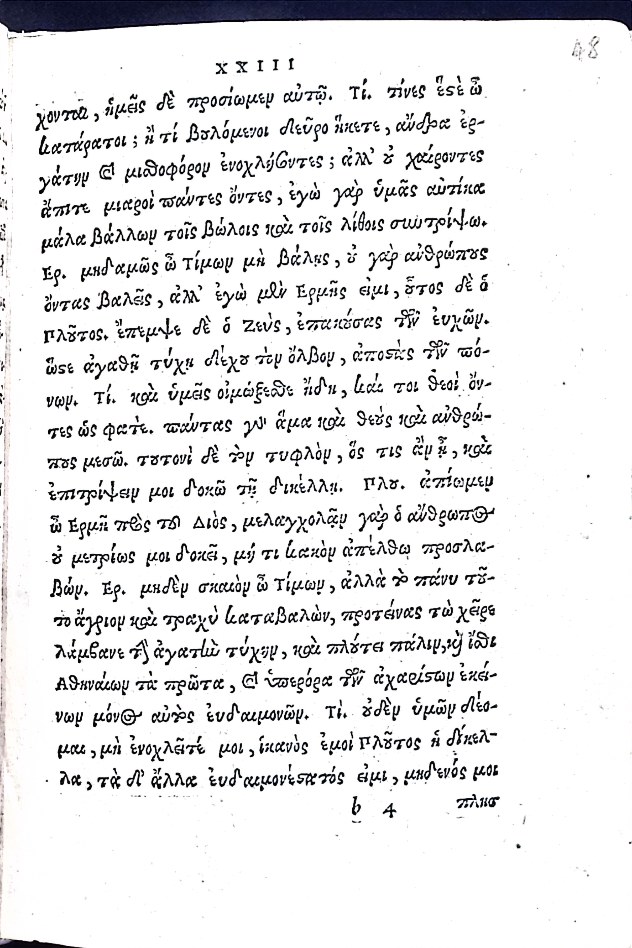 XXIII
48
χοντας, ἡμεῖς δὲ προσίωμεν αὐτῷ. Τί. τίνες ἐστὲ ὦ
κατάρατοι; ἢ τί βουλόμενοι δεῦρο ἥκετε, ἄνδρα ἐρ-
γάτην καὶ μισθοφόρον ἐνοχλήσοντες; ἀλλ' οὐ χαίροντες
ἄπιτε μιαροὶ πάντες ὄντες, ἐγὼ γὰρ ὑμᾶς αὐτίκα
μάλα βάλλων τοῖς βώλοις καὶ τοῖς λίθοις συντρίψω.
Ερ. μηδαμῶς ὦ Τίμων μὴ βάλῃς, οὐ γὰρ ἀνθρώπους
ὄντας βαλεῖς, ἀλλ' ἐγὼ μὲν Ερμῆς εἰμι, οὗτος δὲ ὁ
Πλοῦτος. ἔπεμψε δὲ ὁ Ζεὺς, ἐπακούσας τῶν εὐχῶν.
ὥστε ἀγαθῇ τύχῃ δέχου τὸν ὄλβον, ἀποστὰς τῶν πό-
νων. Τί. καὶ ὑμεῖς οἰμώξεσθε ἤδη, καί τοι θεοὶ ὄν-
τες ὡς φατὲ. πάντας γὰρ ἅμα καὶ θεοὺς καὶ ἀνθρώ-
πους μισῶ. τουτονὶ δὲ τὸν τυφλὸν, ὅς τις ἂν ᾖ, καὶ
ἐπιτρίψειν μοι δοκῶ τῇ δικέλλῃ. Πλου. ἀπίωμεν
ὦ Ερμῆ πρὸς τοῦ Διὸς, μελαγχολᾷν γὰρ ὁ ἄνθρωπος
οὐ μετρίως μοι δοκεῖ, μή τι κακὸν ἀπέλθω προσλα-
βών. Ερ. μηδὲν σκαιὸν ὦ Τίμων, ἀλλὰ τὸ πάνυ τοῦ-
το ἄγριον καὶ τραχὺ καταβαλὼν, προτείνας τὼ χεῖρε
λάμβανε τὴν ἀγαθὴν τύχην, καὶ πλούτει πάλιν, καὶ ἴσθι
Αθηναίων τὰ πρῶτα, καὶ ὑπερόρα τῶν ἀχαρίστων ἐκεί-
νων μόνος αὐτὸς εὐδαιμονῶν. Τί. οὐδὲν ὑμῶν δέο-
μαι, μὴ ἐνοχλεῖτέ μοι, ἱκανὸς ἐμοὶ Πλοῦτος ἡ δίκελ-
λα, τὰ δ' ἄλλα εὐδαιμονέστατός εἰμι, μηδενός μοι
b 4 πλησ